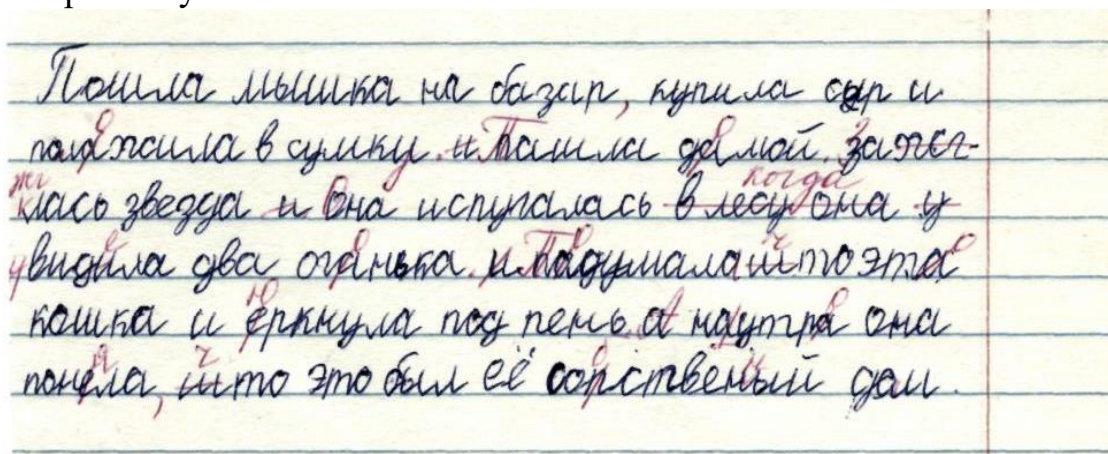 Пошла мышка на базар, купила сыр и
положила в сумку. и Пашла дамой. Зажег-
лась звезда и Она испугалась в лесу когда она у
видила два оганька. и Падумала што это
кошка и еркнула под пень. А наутра она
понела, што это был её сопственый дом.